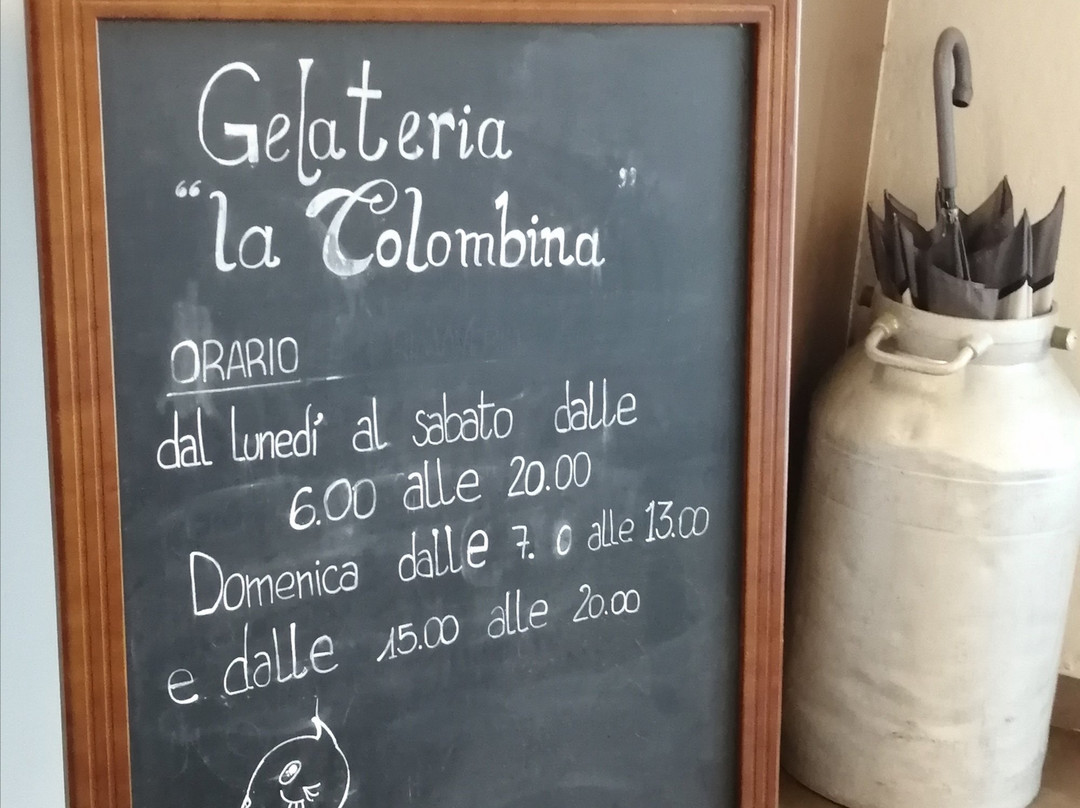 Gelateria
“la Colombina”
ORARIO
dal lunedí al sabato dalle
6.00 alle 20.00
Domenica dalle 7. 0 alle 13.00
e dalle 15.00 alle 20.00